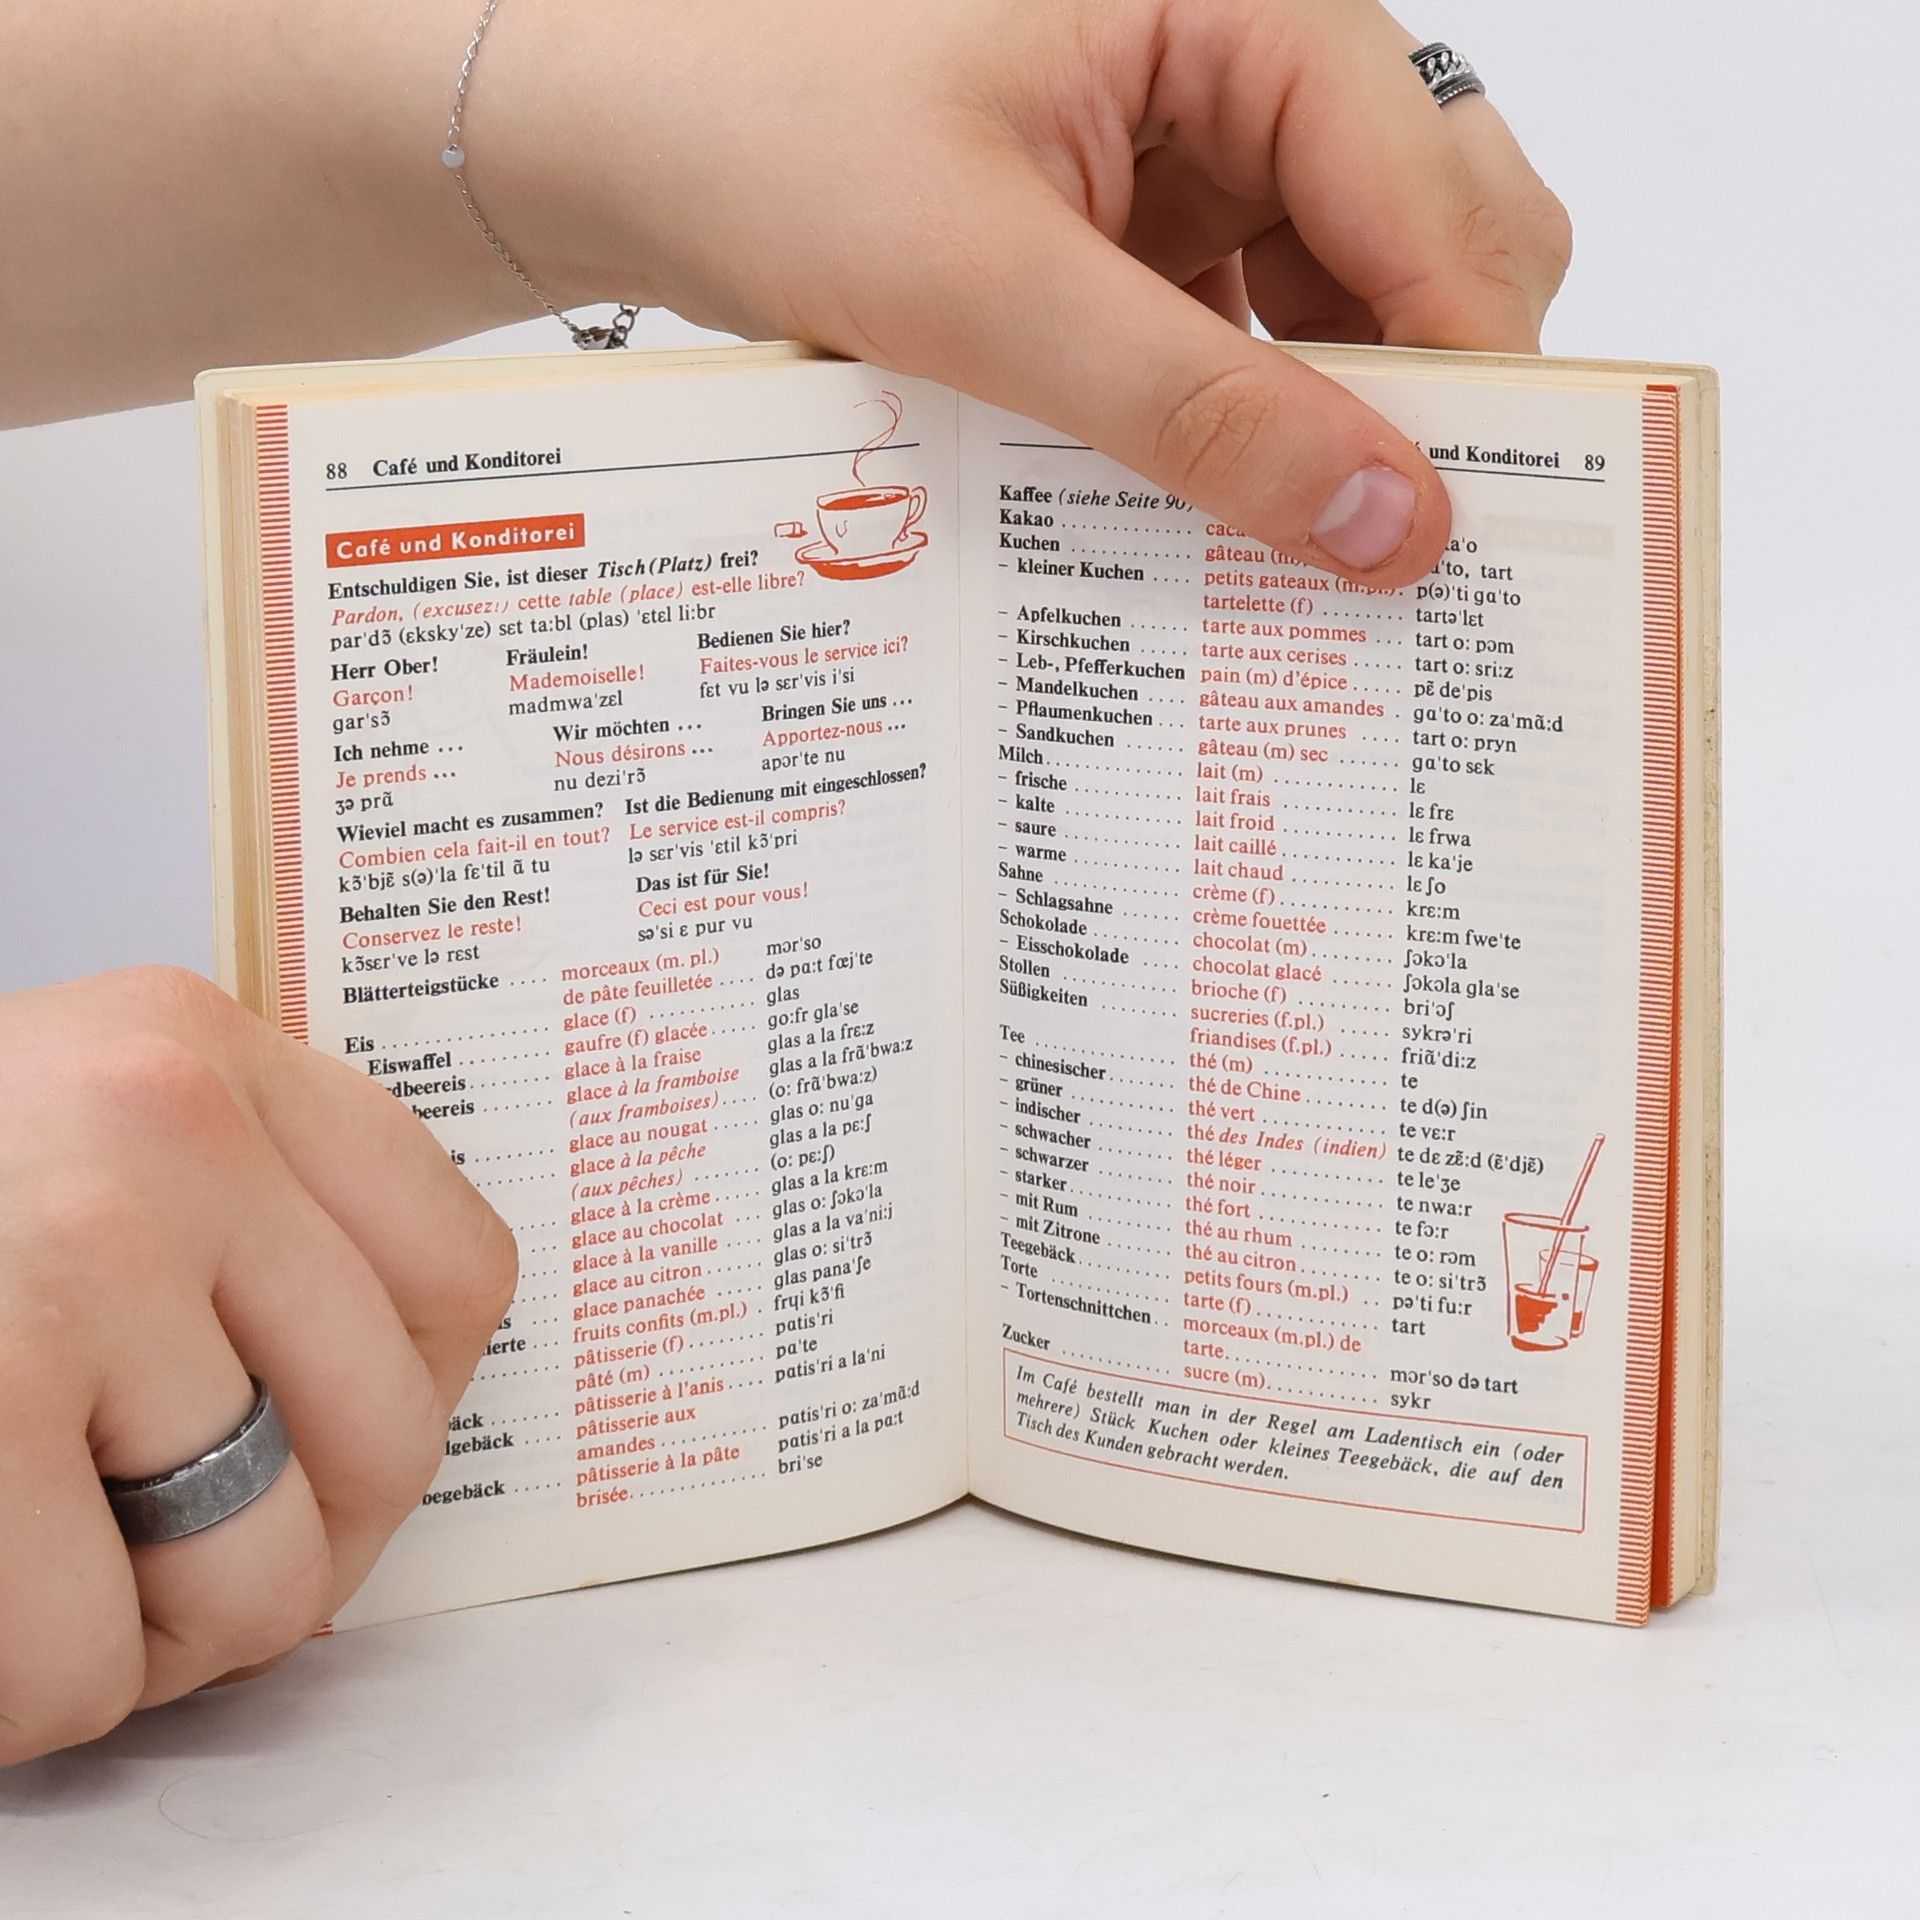 88 Café und Konditorei
Café und Konditorei
Entschuldigen Sie, ist dieser Tisch (Platz) frei?
Pardon, (excusez!) cette table (place) est-elle libre?
par'dɔ̃ (ɛksky'ze) sɛt ta:bl (plas) 'ɛtɛl li:br
Herr Ober! Fräulein! Bedienen Sie hier?
Garçon! Mademoiselle! Faites-vous le service ici?
gar'sɔ̃ madmwa'zɛl fɛt vu lə sɛr'vis i'si
Ich nehme ... Wir möchten ... Bringen Sie uns ...
Je prends ... Nous désirons ... Apportez-nous ...
ʒə prɑ̃ nu dezi'rɔ̃ apɔr'te nu
Wieviel macht es zusammen? Ist die Bedienung mit eingeschlossen?
Combien cela fait-il en tout? Le service est-il compris?
kɔ̃'bjɛ̃ s(ə)'la fɛ'til ɑ̃ tu lə sɛr'vis 'ɛtil kɔ̃'pri
Behalten Sie den Rest! Das ist für Sie!
Conservez le reste! Ceci est pour vous!
kɔ̃sɛr've lə rɛst sə'si ɛ pur vu
Blätterteigstücke .... morceaux (m. pl.) mɔr'so
de pâte feuilletée .... də pɑ:t fœj'te
Eis .......... glace (f) .......... glas
Eiswaffel ......... gaufre (f) glacée ..... go:fr gla'se
glace à la fraise glas a la frɛ:z
glace à la framboise glas a la frɑ̃'bwa:z
(aux framboises) .... (o: frɑ̃'bwa:z)
glace au nougat ..... glas o: nu'ga
glace à la pêche glas a la pɛ:ʃ
(aux pêches) ....... (o: pɛ:ʃ)
glace à la crème ..... glas a la krɛ:m
glace au chocolat ... glas o: ʃɔkɔ'la
glace à la vanille .... glas a la va'ni:j
glace au citron ...... glas o: si'trɔ̃
glace panachée ..... glas pana'ʃe
fruits confits (m.pl.) . frɥi kɔ̃'fi
pâtisserie (f) ....... pɑtis'ri
pâté (m) .......... pɑ'te
pâtisserie à l'anis .... pɑtis'ri a la'ni
pâtisserie aux
amandes .......... pɑtis'ri o: za'mɑ̃:d
pâtisserie à la pâte pɑtis'ri a la pɑ:t
brisée ............ bri'se
und Konditorei 89
Kaffee (siehe Seite 90)
Kakao ...........
Kuchen .......... gâteau tart
– kleiner Kuchen .... petits gateaux (m.pl.). p(ə)'ti gɑ'to
tartelette (f) ........ tartə'lɛt
– Apfelkuchen ...... tarte aux pommes ... tart o: pɔm
– Kirschkuchen ..... tarte aux cerises ..... tart o: sri:z
– Leb-, Pfefferkuchen pain (m) d'épice ..... pɛ̃ de'pis
– Mandelkuchen .... gâteau aux amandes . gɑ'to o: za'mɑ̃:d
– Pflaumenkuchen ... tarte aux prunes .... tart o: pryn
– Sandkuchen ...... gâteau (m) sec ...... gɑ'to sɛk
Milch ............ lait (m) ........... lɛ
– frische .......... lait frais .......... lɛ frɛ
– kalte ........... lait froid .......... lɛ frwa
– saure ........... lait caillé .......... lɛ ka'je
– warme .......... lait chaud ......... lɛ ʃo
Sahne ............ crème (f) .......... krɛ:m
– Schlagsahne ...... crème fouettée ...... krɛ:m fwe'te
Schokolade ........ chocolat (m) ........ ʃɔkɔ'la
– Eisschokolade .... chocolat glacé ...... ʃɔkɔla gla'se
Stollen ........... brioche (f) ......... bri'ɔʃ
Süßigkeiten ....... sucreries (f.pl.) ..... sykrə'ri
friandises (f.pl.) ..... friɑ̃'di:z
Tee .............. thé (m) ........... te
– chinesischer ....... thé de Chine ........ te d(ə) ʃin
– grüner .......... thé vert ........... te vɛ:r
– indischer ......... thé des Indes (indien) te dɛ zɛ̃:d (ɛ̃'djɛ̃)
– schwacher ........ thé léger .......... te le'ʒe
– schwarzer ........ thé noir ........... te nwa:r
– starker .......... thé fort ........... te fɔ:r
– mit Rum ........ thé au rhum ........ te o: rɔm
– mit Zitrone ....... thé au citron ........ te o: si'trɔ̃
Teegebäck ......... petits fours (m.pl.) .. pə'ti fu:r
Torte ............ tarte (f) .......... tart
– Tortenschnittchen .. morceaux (m.pl.) de
tarte ............. mɔr'so də tart
Zucker ........... sucre (m) .......... sykr
Im Café bestellt man in der Regel am Ladentisch ein (oder
mehrere) Stück Kuchen oder kleines Teegebäck, die auf den
Tisch des Kunden gebracht werden.